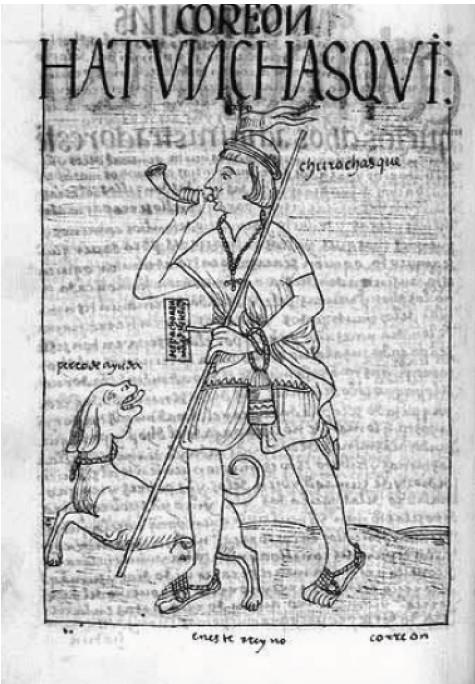 COREON
HATVNCHASQVI:
churochasque
perro de ayuda
en este rreyno
correon